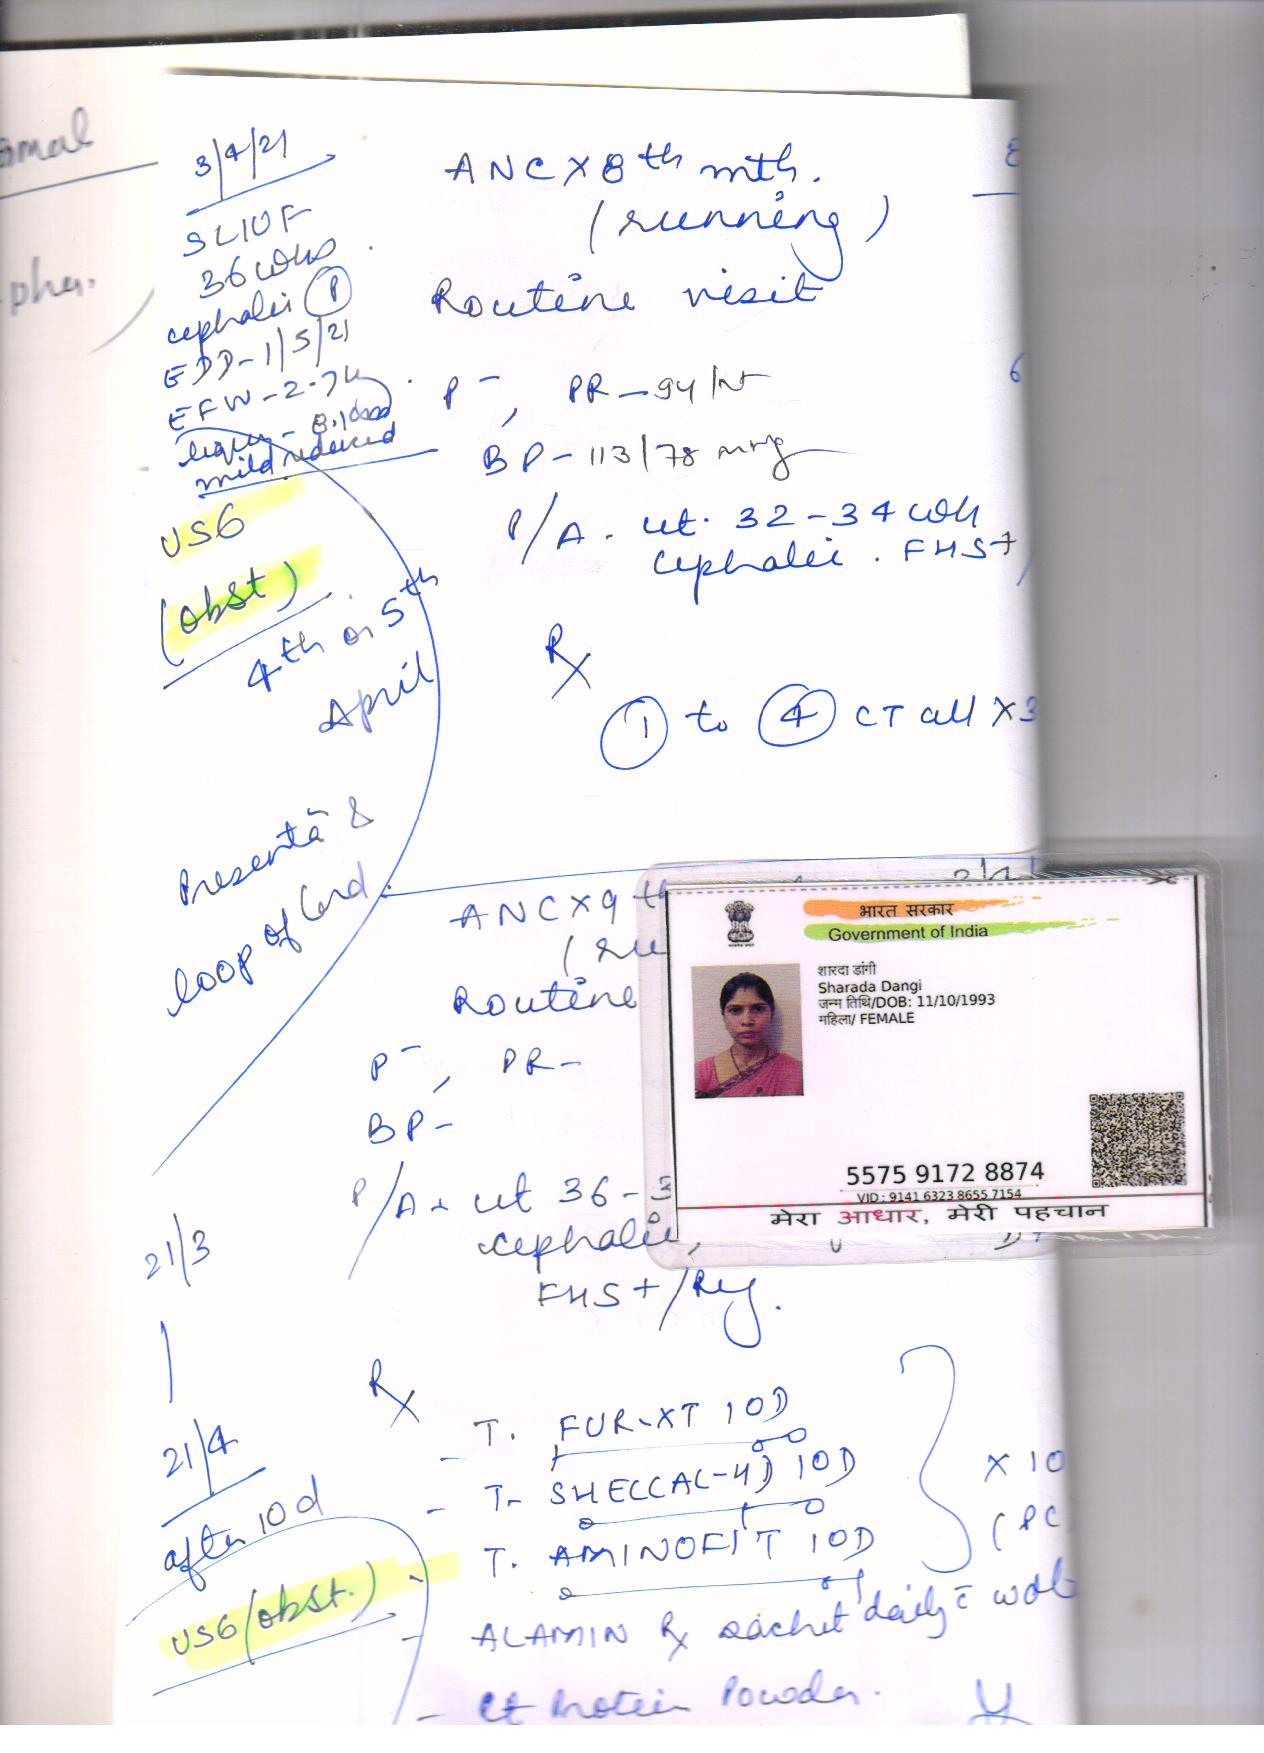 3/4/21
SLIUF
36 wks
cephalic (P)
EDD-1/5/21
EFW-2.7k
liquor - 8.1
mild reduced
USG
(obst)
4th or 5th
April
Presentā &
loop of Cord.
21/3
21/4
after 10d
USG (obst.)
ANC X 8th mth.
(running)
Routine visit
P-, PR-94/
BP-113/78
P/A. ut. 32-34 wk
cephalic. FHS+
Rx
1 to 4 CT all X 3
ANC X 9th
Routine
P-, PR-
BP-
P/A. ut 36-3
cephalic,
FHS+/Reg.
Rx
- T. FUR-XT 10D
- T- SHELCAL-HD 10D
- T. AMINOFIT 10D
X 10
(PC
- ALAMIN Rx sachet daily c̄
- Ct Protein Powder.
भारत सरकार
Government of India
शारदा डांगी
Sharada Dangi
जन्म तिथि/DOB: 11/10/1993
महिला/ FEMALE
5575 9172 8874
VID : 9141 6323 8655 7154
मेरा आधार, मेरी पहचान